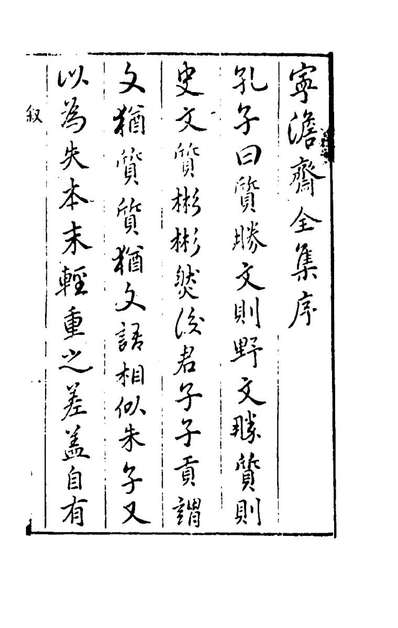 寧澹齋全集序
孔子曰質勝文則野文勝質則
史文質彬彬然後君子子貢謂
文猶質質猶文語相似朱子又
以為失本末輕重之差盖自有
叙